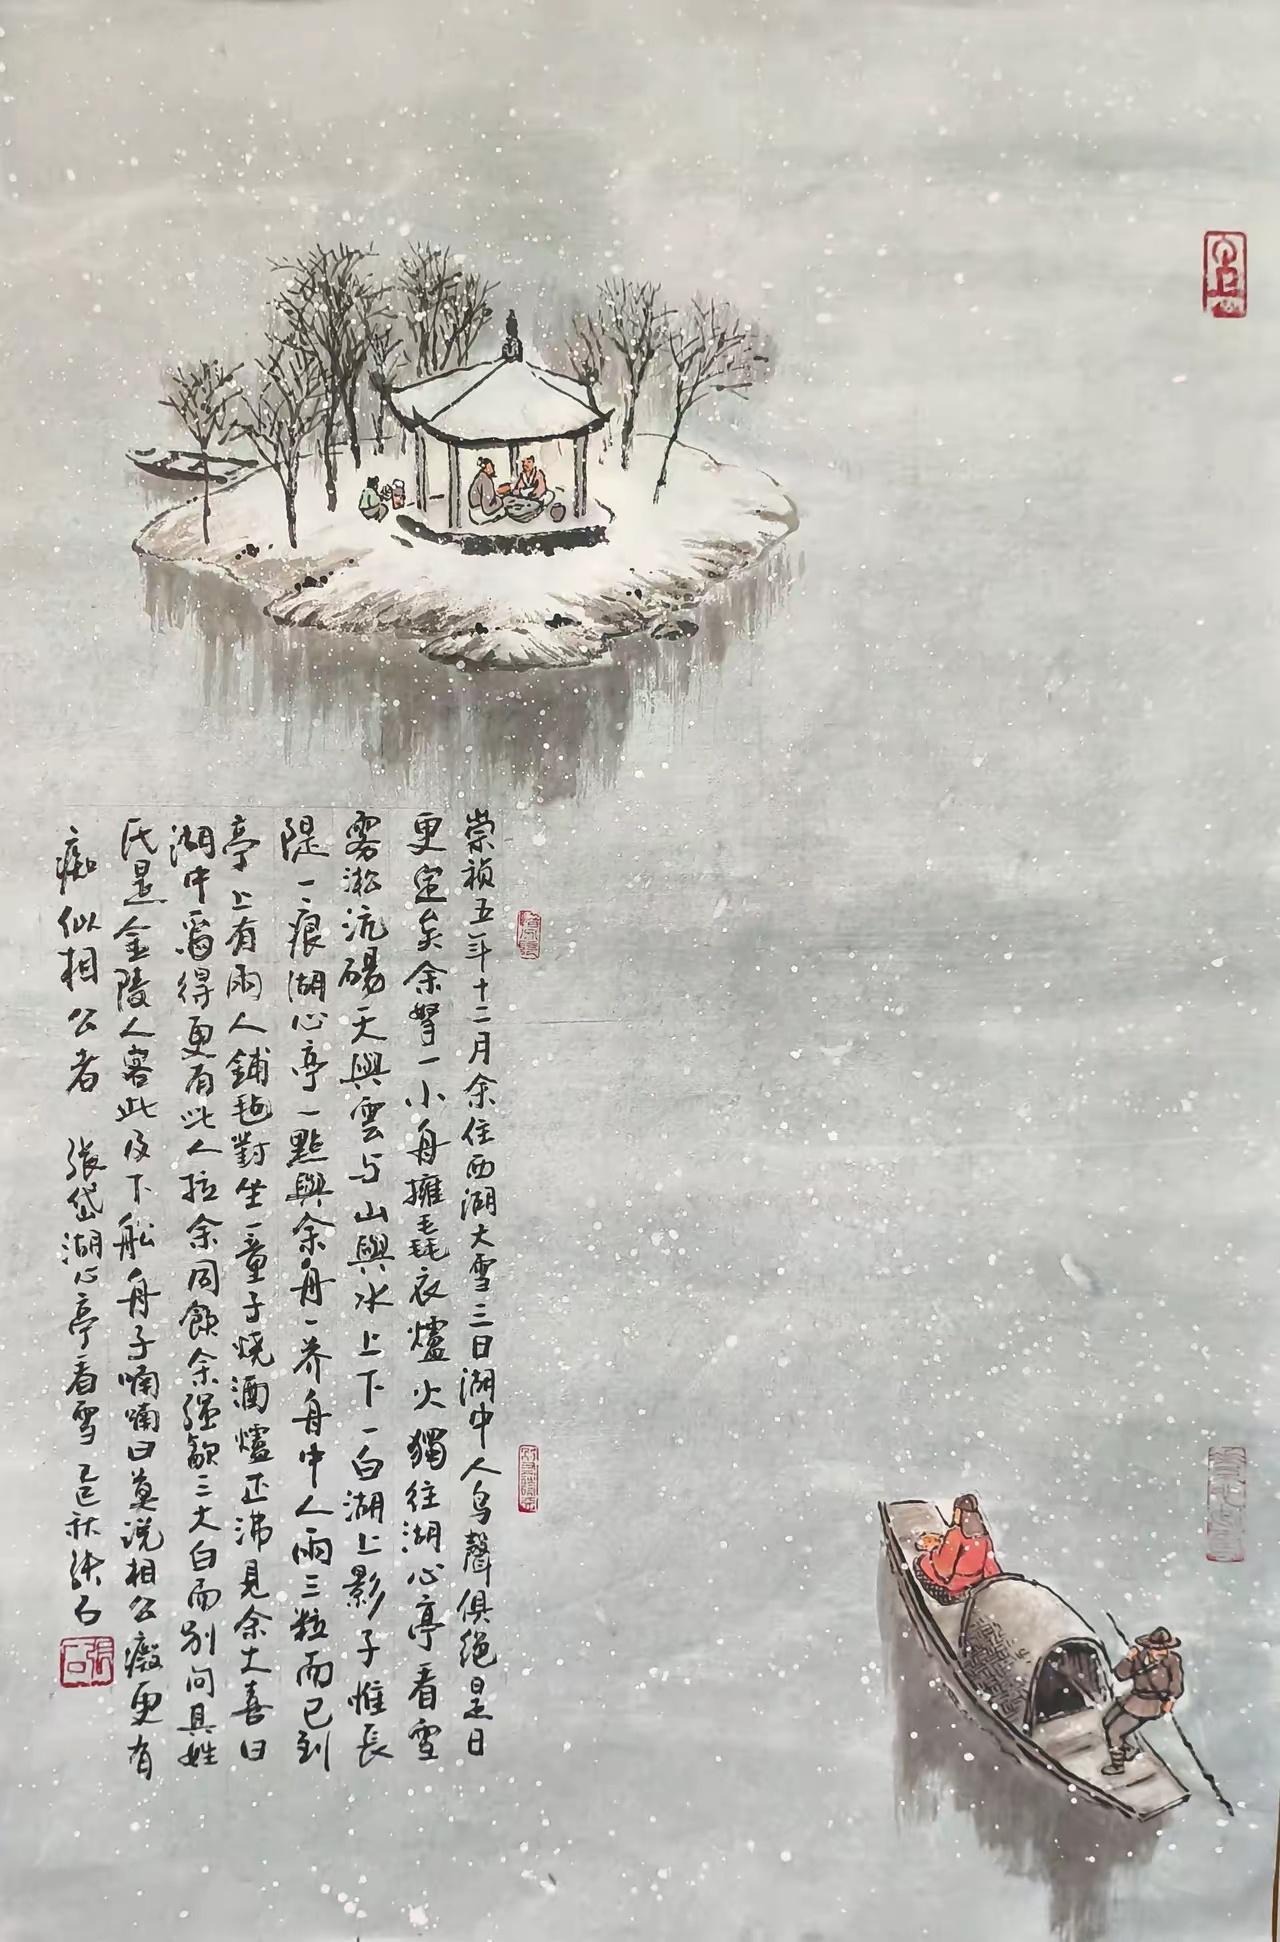 崇祯五年十二月余住西湖大雪三日湖中人鸟聲俱绝是日
更定矣余拏一小舟擁毳衣爐火獨往湖心亭看雪
雾淞沆碭天與雲与山與水上下一白湖上影子惟長
隄一痕湖心亭一點與余舟一芥舟中人兩三粒而已到
亭上有兩人鋪毡對坐一童子燒酒爐正沸見余大喜曰
湖中焉得更有此人拉余同飲余强飲三大白而别问其姓
氏是金陵人客此及下船舟子喃喃曰莫说相公癡更有
痴似相公者 張岱湖心亭看雪 乙巳秋张石
張石